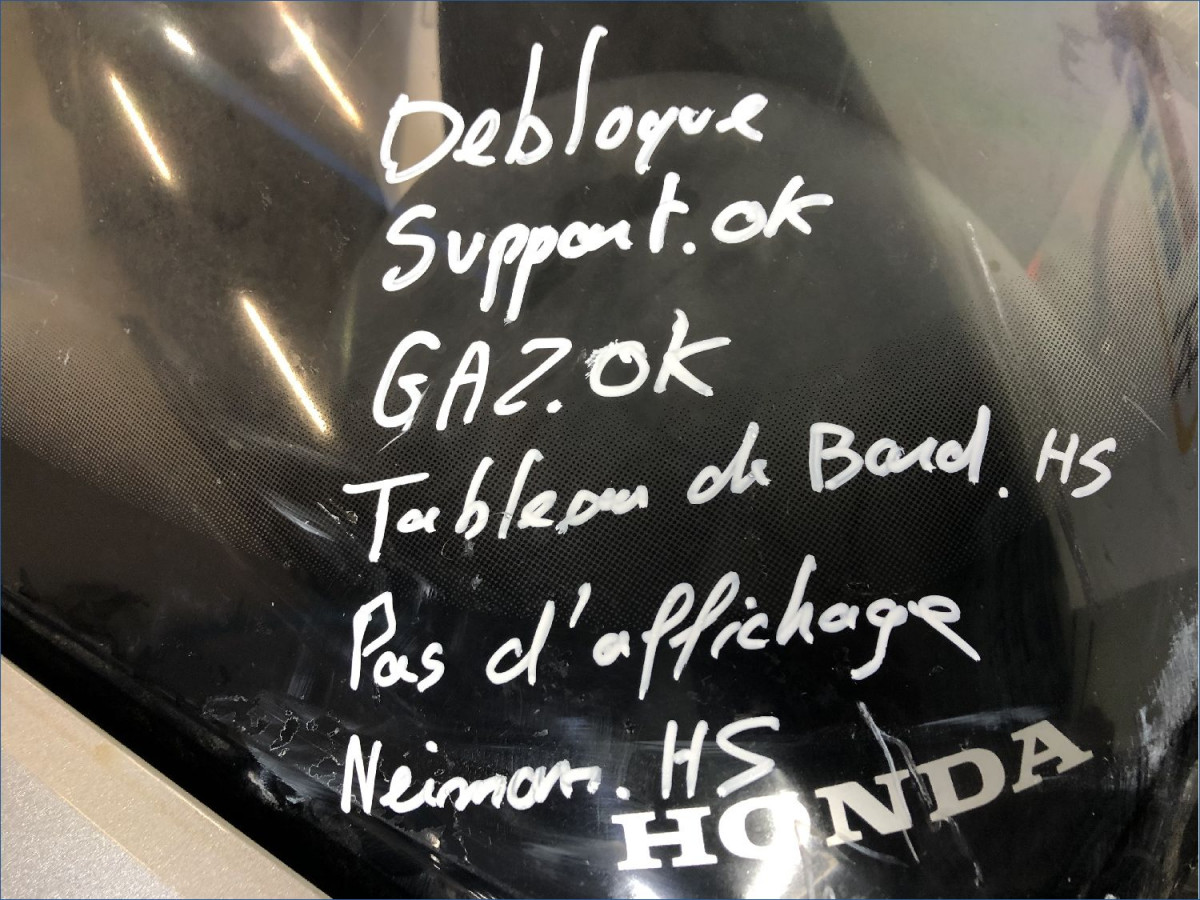 Debloque
Support.ok
GAZ.OK
Tableau de Bord. HS
Pas d'affichage
Neiman. HS
HONDA